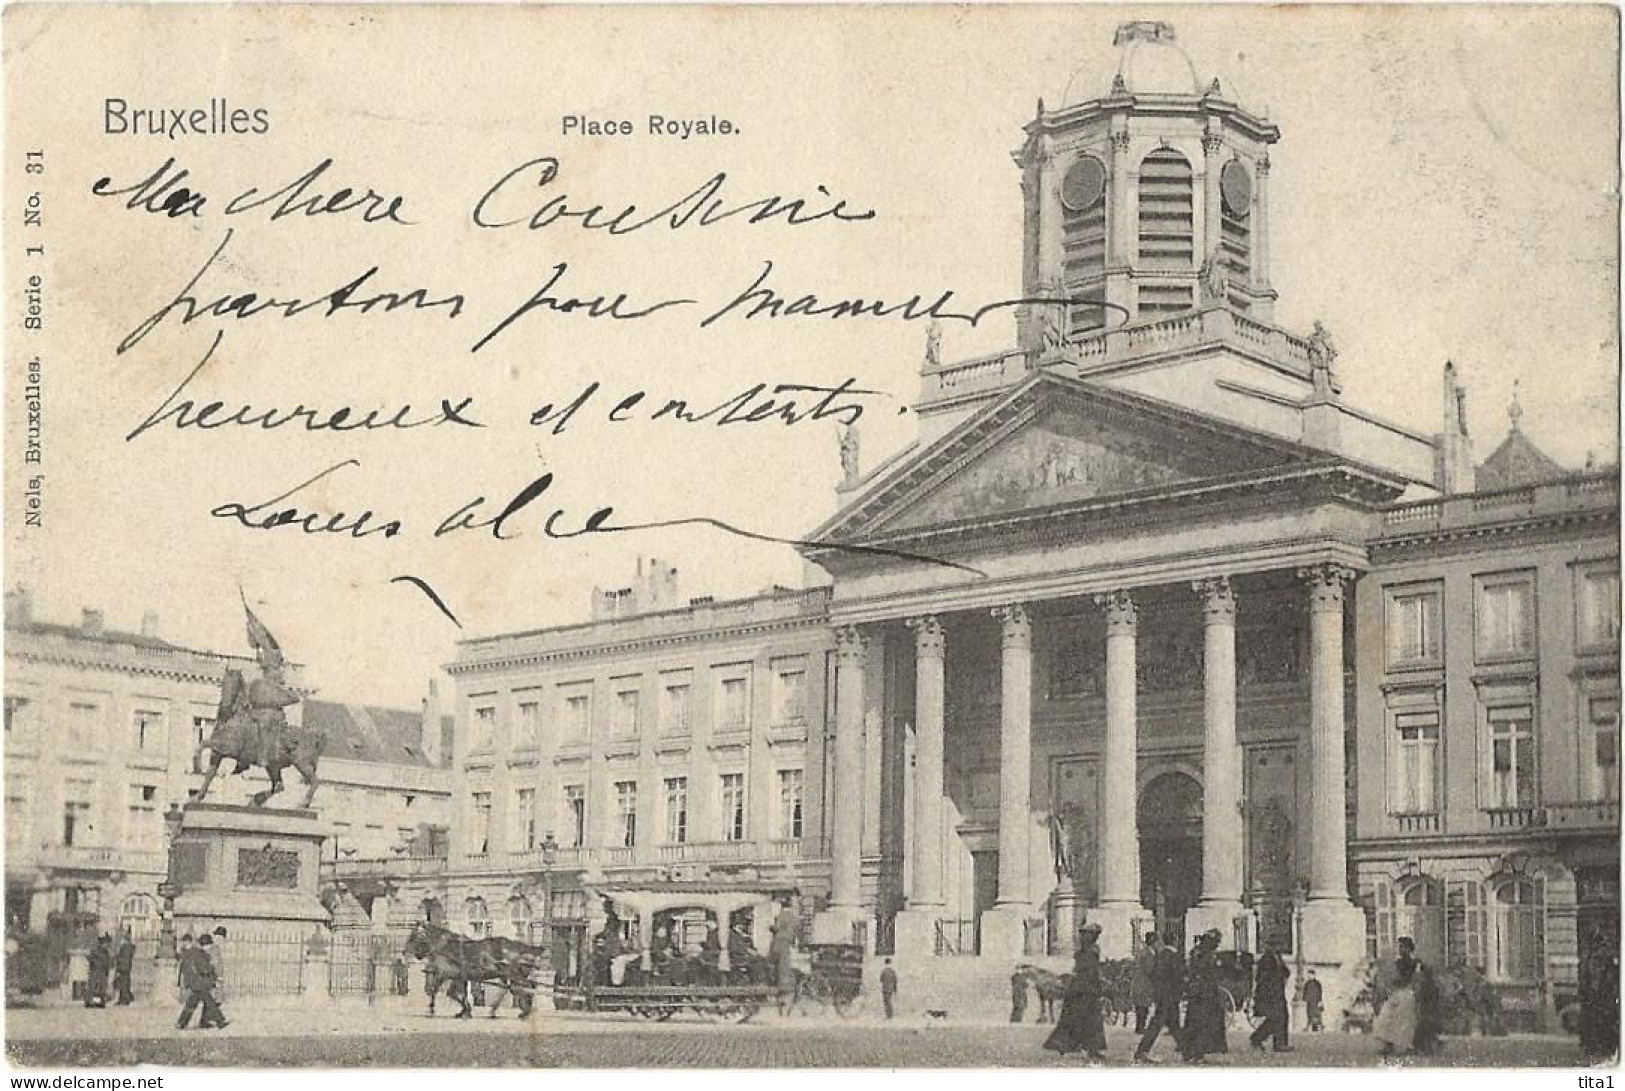 Bruxelles
Place Royale.
Nels, Bruxelles. Serie 1 No. 31
Ma chère Cousine
partons pour Namur
heureux et contents.
Louis Alice
tita1